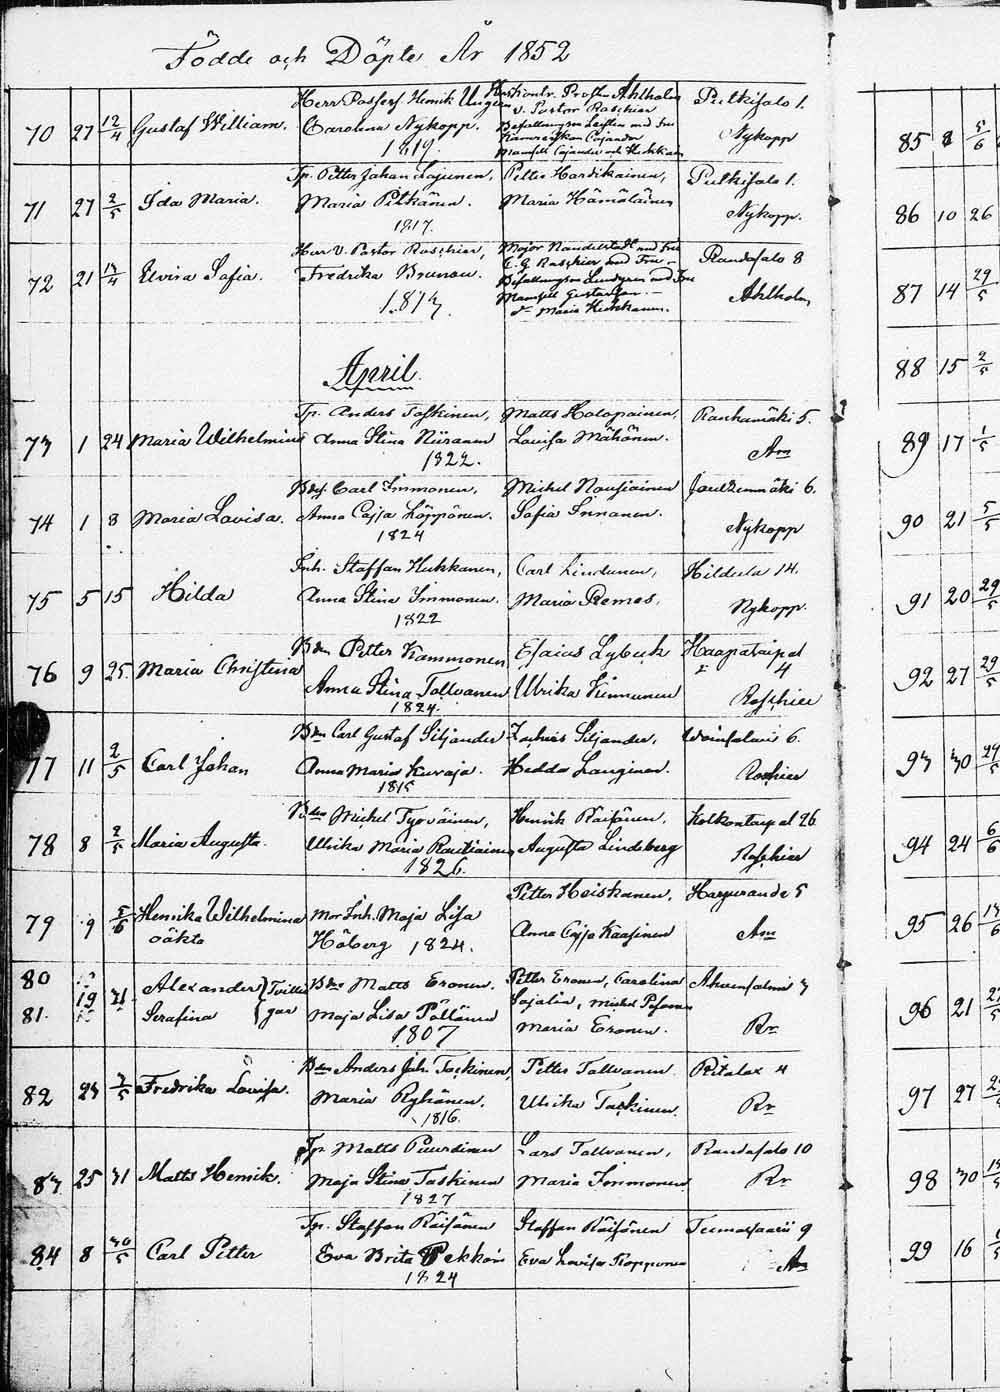 Födde och Döpte År 1852
70 27 12/4 Gustaf William. Herr Henrik Carolina Nykopp. 1819. Ahlholm v. Pastor Roschier Pulkisalo 1. Nykopp
71 27 2/5 Ida Maria. Tp. Petter Johan Lajunen, Maria Pitkänen. 1817. Petter Hardikainen, Maria Hämäläinen Pulkisalo 1. Nykopp.
72 21 13/4 Elvira Sofia. Herr V. Pastor Roschier, Fredrika Brunou. Major Nandelstadt med Fru C. G. Roschier med Fru Befallningsm Lundgren med Fru Mamsell Gustafson Maria Hukkanen. Randasalo 8 Ahlholm
April.
73 1 24 Maria Wilhelmina Tp. Anders Taskinen, Anna Stina Niiranen 1822. Matts Holopainen, Lovisa Mähönen. Rauhamäki 5. Am
74 1 8 Maria Lovisa. Carl Immonen, Anna Cajsa Löppönen. 1824 Michel Nousiainen Sofia Innanen. 6. Nykopp
75 5 15 Hilda Inh. Staffan Hukkanen, Anna Stina Immonen. 1822 Carl Lindunen, Maria Remes. Hildula 14. Nykopp.
76 9 25. Maria Christina Bdn Petter Kammonen Anna Stina Tolvanen 1824. Esaias Lybeck Ulrika Kinnunen Haapataipal 4 Roschier
77 11 2/5 Carl Johan Bdn Carl Gustaf Siljander Anna Maria Kuvaja. 1815 Zachris Siljander, Hedda Langinen. 6. Roschier
78 8 2/5 Maria Augusta. Bdn Michel Työväinen, Ulrika Maria Rautiainen 1826. Henrik Räisänen, Augusta Lindeberg Kolkontaipal 26 Roschier
79 9 5/6 Henrika Wilhelmina oäkta Mor Inh. Maja Lisa Höberg 1824. Petter Heiskanen, Anna Cajsa Kaasinen Harjuranda 5 Am
80 81. 19 31 Alexander Serafina } Tvillingar Bdn Matts Eronen. Maja Lisa Pöllänen 1807 Petter Eronen, Carolina Sajalin, Michel Maria Eronen. Ahvensalmi 3 Rr
82 23 2/5 Fredrika Lovisa. Bdn Anders Joh. Taskinen, Maria Rykänen. 1816. Petter Tallvanen. Ulrika Taskinen. Ritalax 4 Rr
83 25 31 Matts Henrik. Tp. Matts Puurdinen Maja Stina Taskinen 1827 Lars Tallvanen, Maria Immonen Randasalo 10 Rr
84 8 30/5 Carl Petter Tp. Staffan Räisänen Eva Brita Pekkonen 1824 Staffan Räisänen Eva Lovisa Ropponen Tuomassaari 9 Am
85 8 5/6
86 10 26
87 14 29/5
88 15 2/5
89 17 1/5
90 21 5/5
91 20 29/5
92 27 29/5
93 30 29/5
94 24 6/6
95 26 13/6
96 21
97 27
98 30
99 16